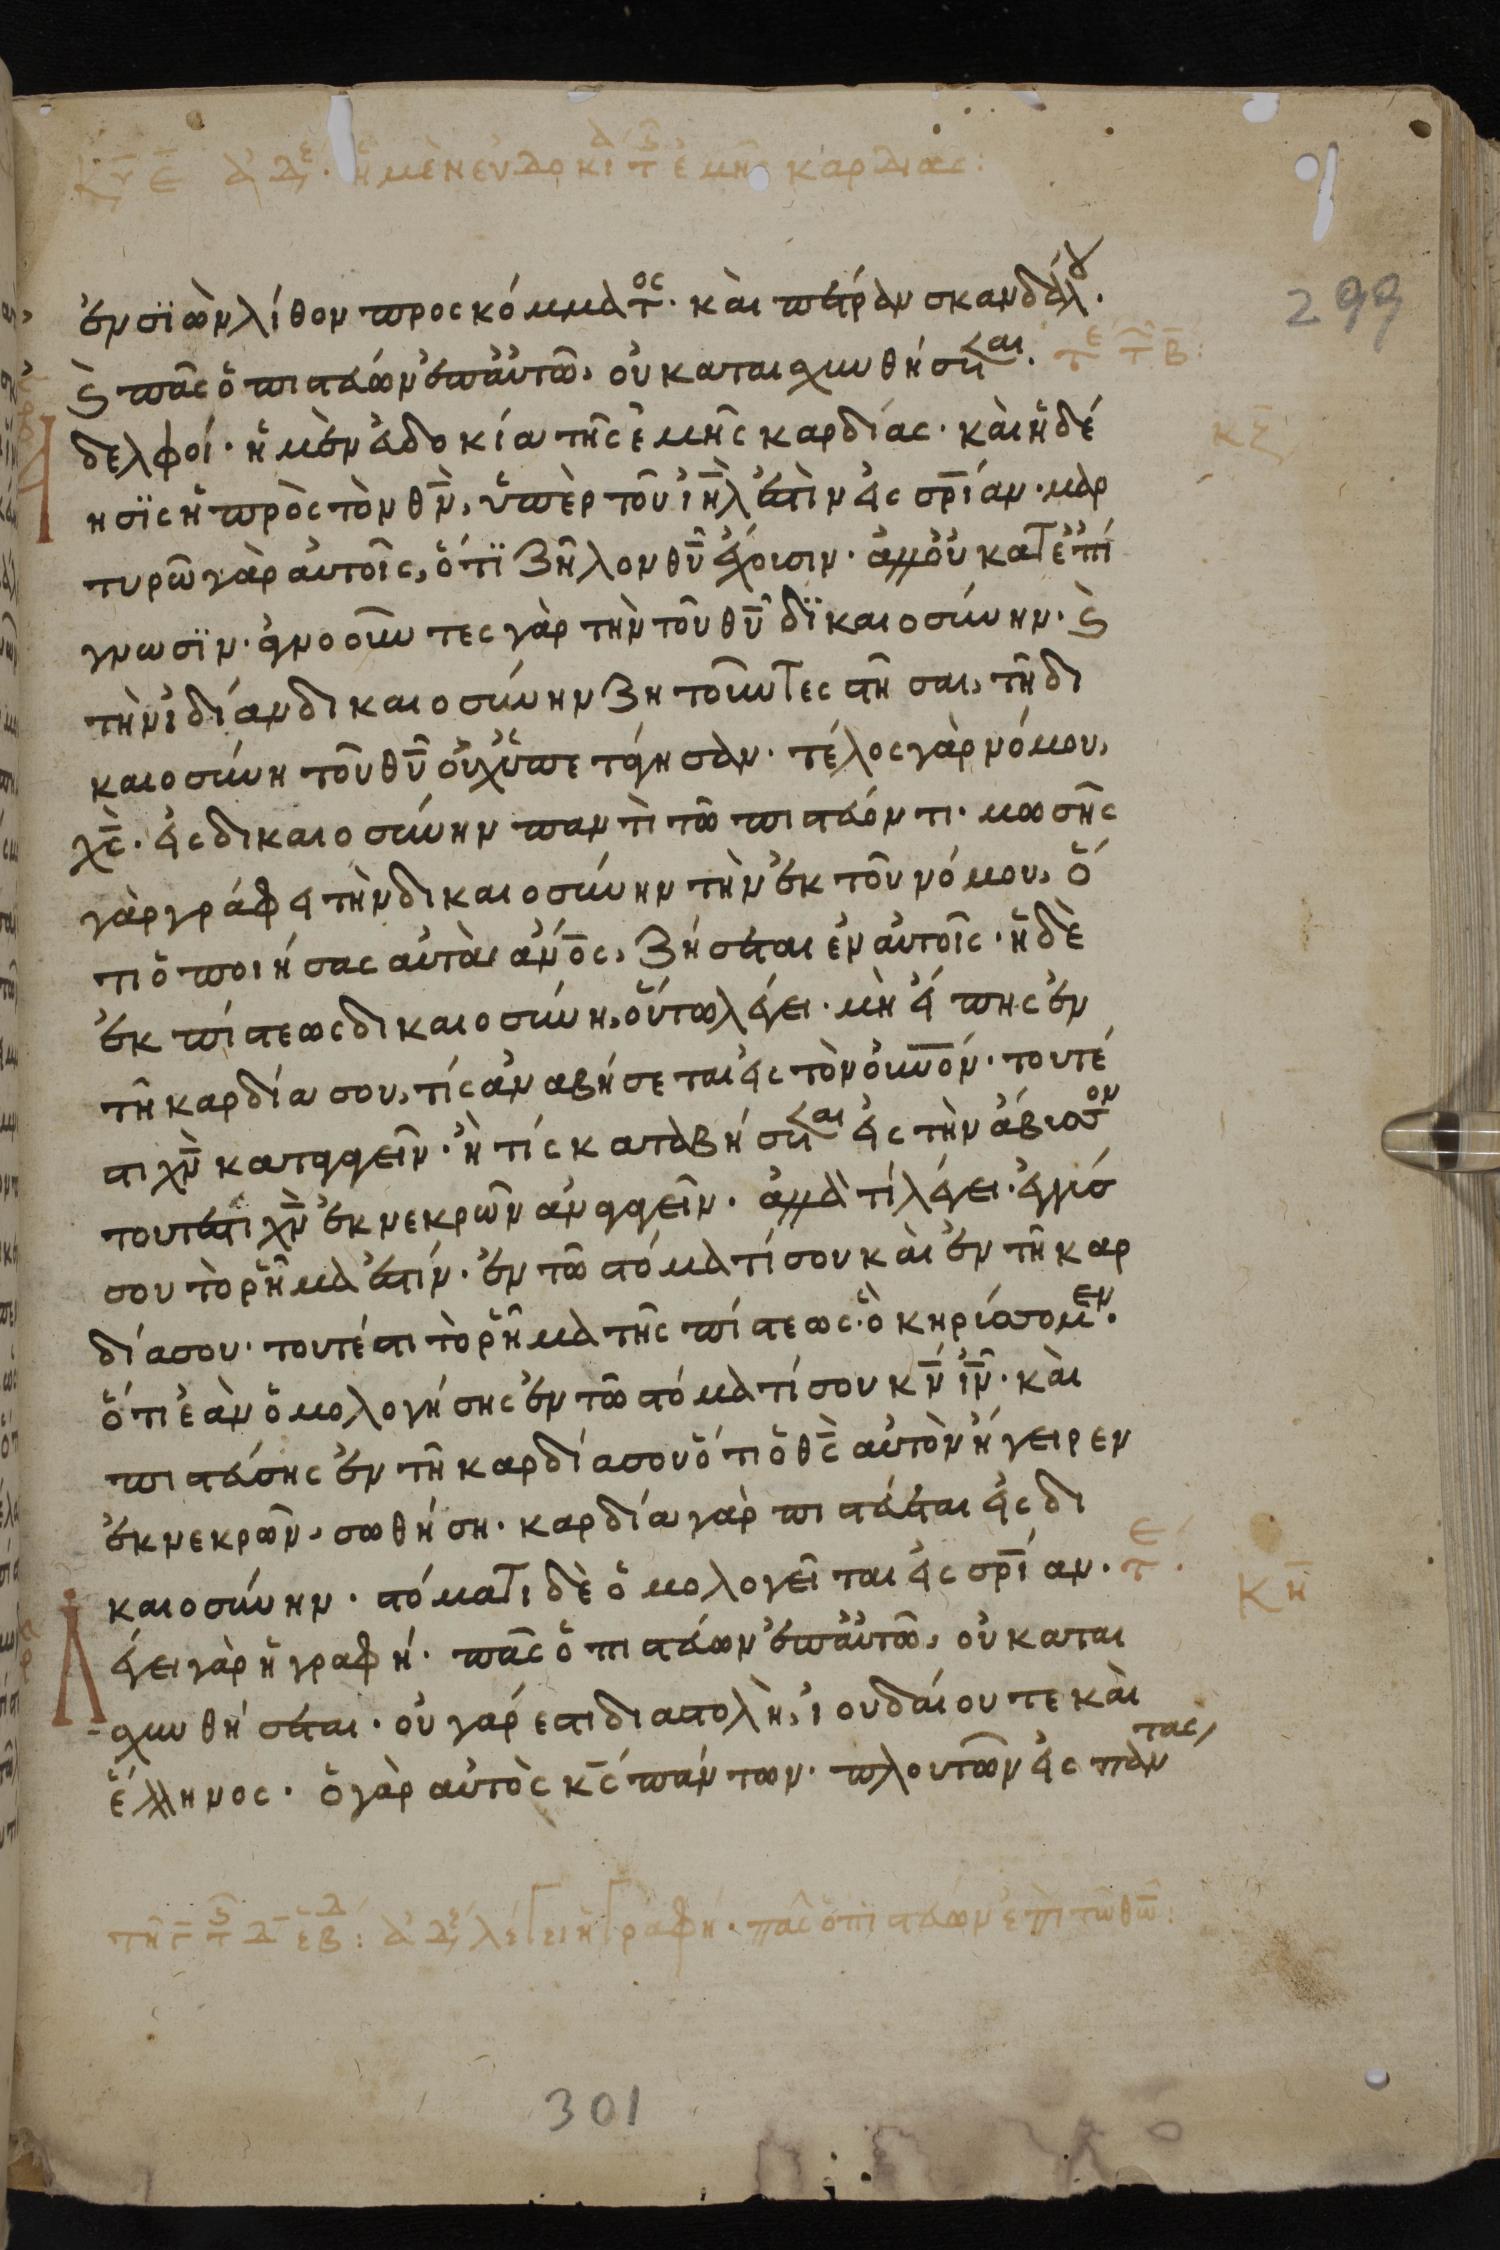 Κυ ε ἀδε. ἡ μὲν εὐδοκί τ ἐμῆ καρδίας:
299
ἐν σϊὼν λίθον προσκόμματος· καὶ πέτραν σκανδάλου.
ϗ πᾶς ὁ πιστεύων ἐπ' αὐτῶ, οὐ καταισχυνθήσεται. τε τ β:
κζ
Ἀδελφοί· ἡ μὲν εὐδοκία τῆς ἐμῆς καρδίας· καὶ ἡ δέ
ησϊς ἡ πρὸς τὸν θν̄, ὑπὲρ τοῦ ιηλ ἐστὶν εἰς σρίαν· μαρ
τυρῶ γὰρ αὐτοῖς, ὅτϊ ζῆλον θῡ ἔχουσιν· ἀλλ' οὐ κατ ἐπί
γνωσϊν· ἀγνοοῦντες γὰρ τὴν τοῦ θῡ δϊκαιοσύνην· ϗ
τὴν ἰδίαν δικαιοσύνην ζητοῦντες στῆσαι, τῆ δι
καιοσύνη τοῦ θῡ οὐχ ὑπετάγησαν· τέλος γὰρ νόμου,
χς̄· εἰς δικαιοσύνην παντὶ τῶ πιστεύοντι· μωσῆς
γὰρ γράφει τὴν δικαιοσύνην τὴν ἐκ τοῦ νόμου, ὅ
τι ὁ ποιήσας αὐτὰ ἄνος, ζήσεται ἐν αὐτοῖς· ἡ δὲ
ἐκ πίστεως δικαιοσύνη, οὕτω λέγει· μὴ εἴπης ἐν
τῆ καρδία σου, τίς ἀναβήσεται εἰς τὸν οὐνον· τουτέ
στι χν̄ καταγαγεῖν· ἢ τίς καταβήσεται εἰς τὴν ἄβυσσον
τουτέστι χν̄ ἐκ νεκρῶν ἀναγαγεῖν· ἀλλὰ τί λέγει· ἐγγύς
σου τὸ ῥῆμα ἐστίν· ἐν τῶ στόματί σου καὶ ἐν τῆ καρ
δία σου· τουτέστι τὸ ῥῆμα τῆς πίστεως· ὃ κηρύσσομεν.
ὅτι ἐὰν ὁμολογήσης ἐν τῶ στόματί σου κν̄ ιν̄· καὶ
πιστεύσης ἐν τῆ καρδία σου ὅτι ὁ θς̄ αὐτὸν ἤγειρεν
ἐκ νεκρῶν, σωθήση· καρδία γὰρ πιστεύεται εἰς δι
καιοσύνην· στόματι δὲ ὁμολογεῖται εἰς σρίαν. τε.
κη
Λέγει γὰρ ἡ γραφή· πᾶς ὁ πιστεύων ἐπ' αὐτῶ, οὐ καται
σχυνθήσεται· οὐ γάρ εστι διαστολὴ, ἰουδαίου τε καὶ
ἕλληνος· ὁ γὰρ αὐτὸς κς̄ πάντων· πλουτῶν εἰς πάντας,
τῆ ϛ τ δ εβ: ἀδε λέγει ἡ γραφή· πᾶς ὁ πιστεύων ἐπὶ τῶ θω:
301